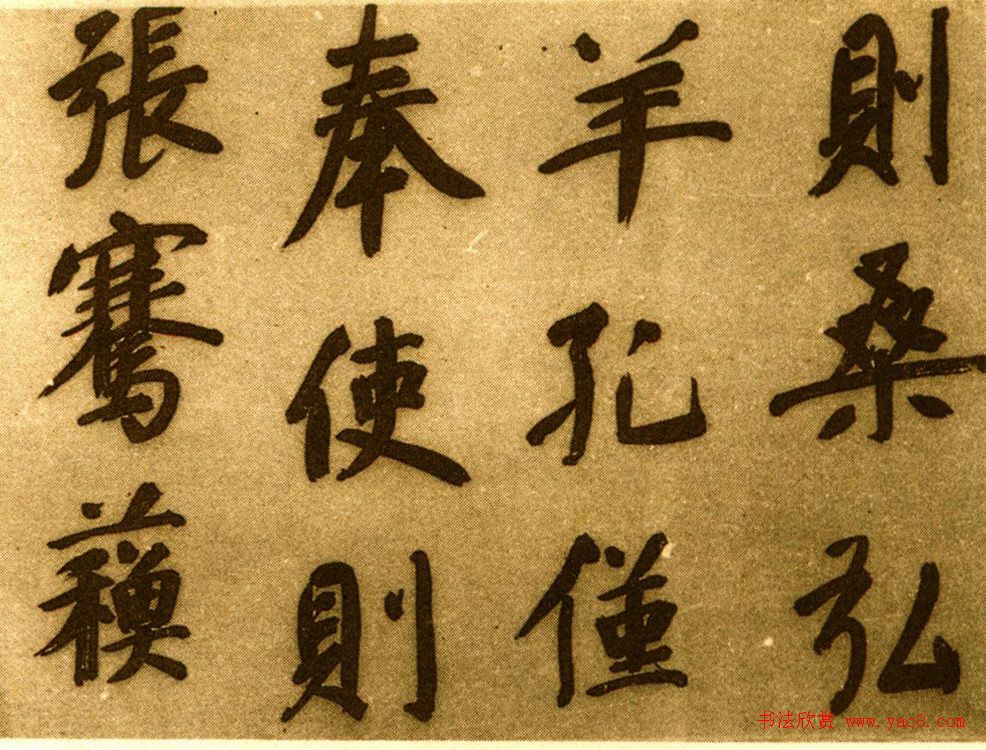 則桑弘
羊孔僅
奉使則
張騫蘓
书法欣赏 www.yac8.com